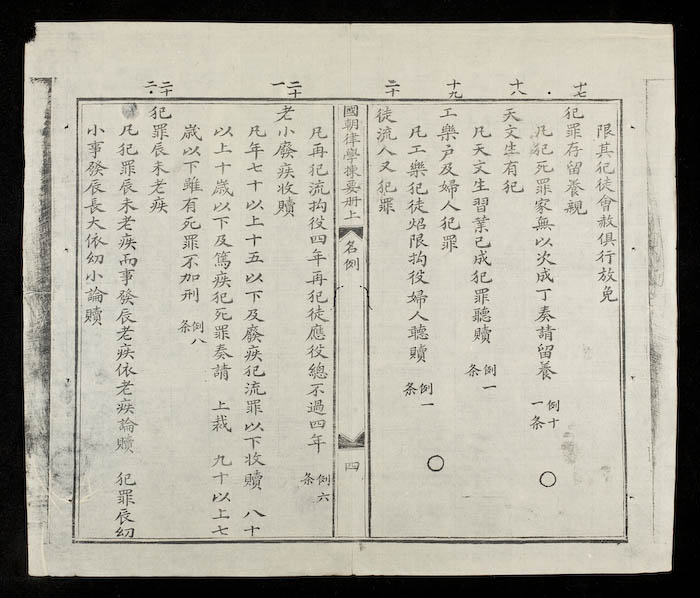 十七
限其犯徒會赦俱行放免
犯罪存留養親
凡犯死罪家無以次成丁奏請留養 例十一条 〇
十八
天文生有犯
凡天文生習業已成犯罪聽贖 例一条
十九
工樂戶及婦人犯罪
凡工樂犯徒炤限拘役婦人聽贖 例一条 〇
二十
徒流人又犯罪
國朝律學揀要册上 名例 四
凡再犯流拘役四年再犯徒應役總不過四年 例六条
二十一
老小廢疾收贖
凡年七十以上十五以下及廢疾犯流罪以下收贖 八十
以上十歲以下及篤疾犯死罪奏請 上裁 九十以上七
歲以下雖有死罪不加刑 例八条
二十二
犯罪辰未老疾
凡犯罪辰未老疾而事發辰老疾依老疾論贖 犯罪辰幼
小事發辰長大依幼小論贖